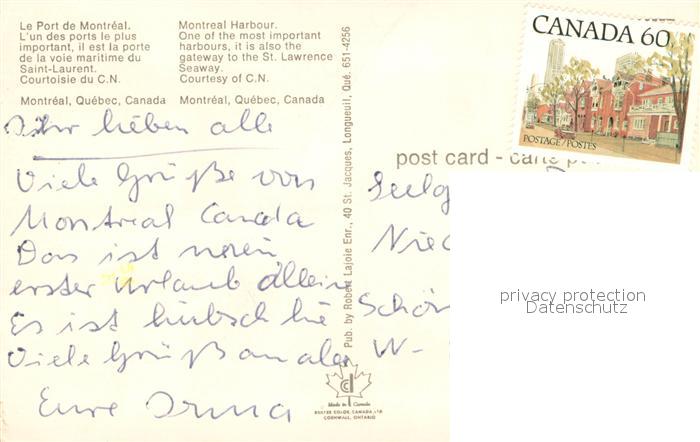 Le Port de Montréal.
L'un des ports le plus
important, il est la porte
de la voie maritime du
Saint-Laurent.
Courtoisie du C.N.
Montréal, Québec, Canada
Montreal Harbour.
One of the most important
harbours, it is also the
gateway to the St. Lawrence
Seaway.
Courtesy of C.N.
Montréal, Québec, Canada
CANADA 60
POSTAGE/POSTES
post card - carte
Ihr lieben alle
Viele Grüße von
Montreal Canada
Das ist mein
erster Urlaub allein
Es ist hübsch hie
Viele Grüß an alle
Eure Irma
Pub. by Robert Lajoie Enr., 40 St. Jacques, Longueuil, Qué. 651-4256
Made in Canada
COLOR, CANADA LTD
CORNWALL, ONTARIO
Nie
Schön
W-
privacy protection
Datenschutz